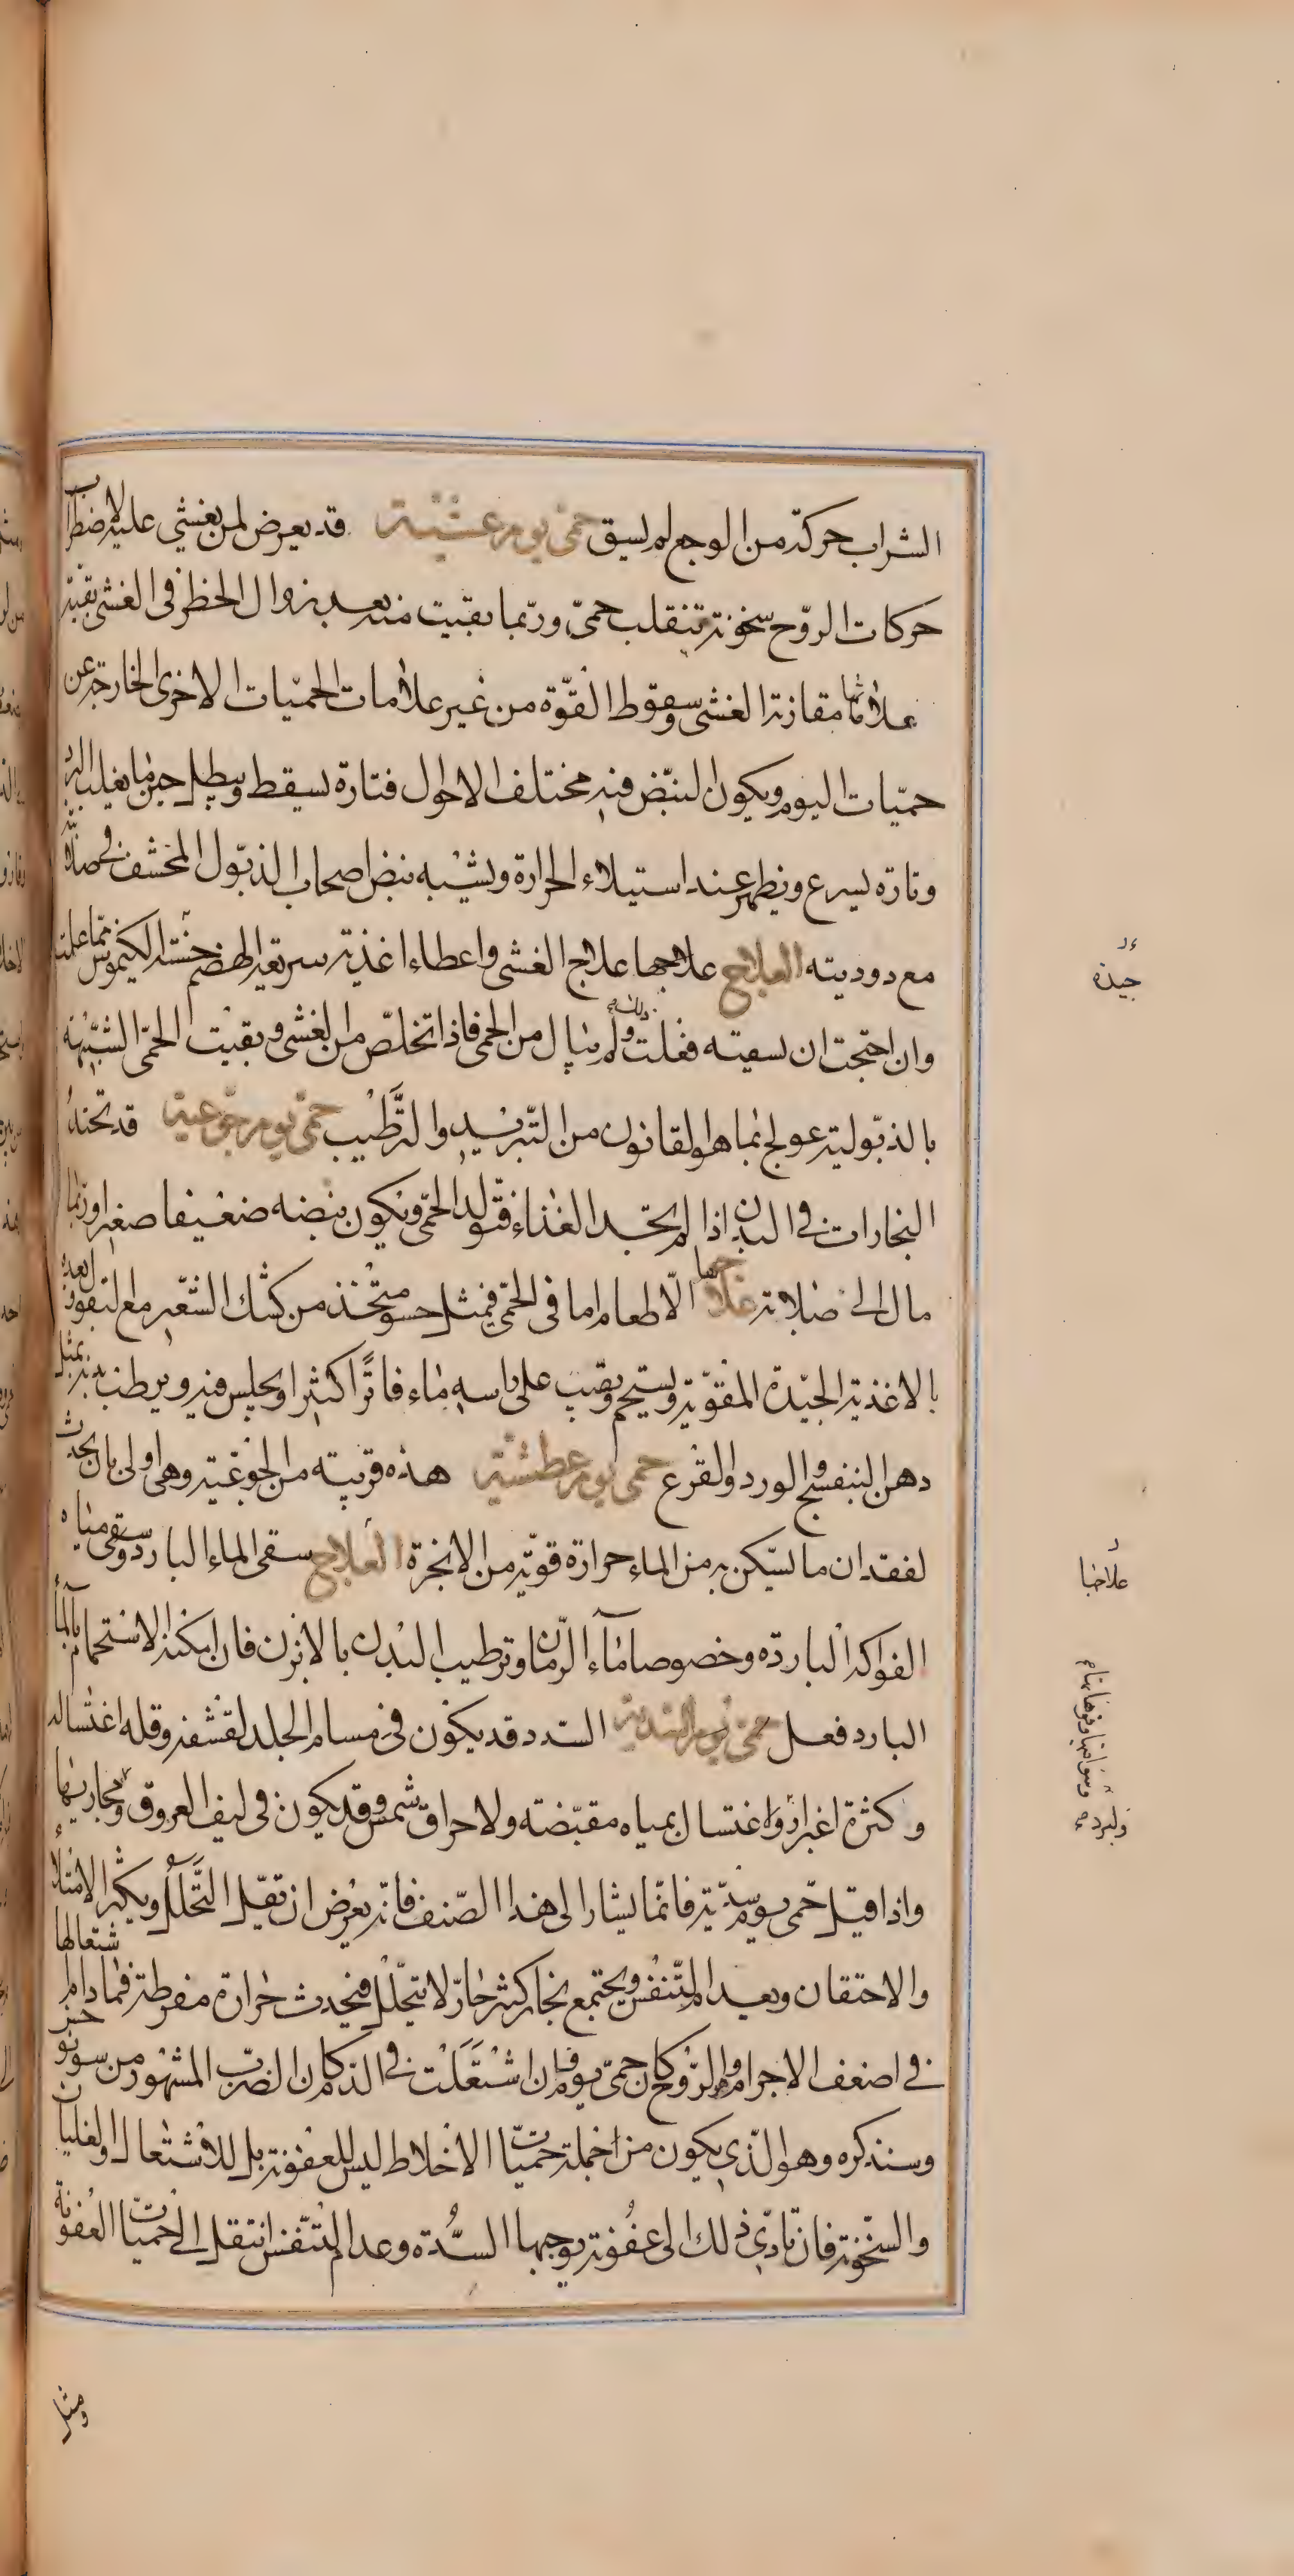 الشراب حركة من الوجع لم يسق حمى يوم غشية قد يعرض لمن يغشى عليه لاضطراب
حركات الروح سخونة تنقلب حمى وربما بقيت منه بعد زوال الخطر فى الغشى بقية
علاماتها مقارنة الغشى وسقوط القوة من غير علامات الحميات الاخرى الخارجة عن
حميات اليوم ويكون النبض فيه مختلف الاحوال فتارة يسقط ويبطل حين ما يغلب البرد
وتارة يسرع ويظهر عند استيلاء الحرارة ويشبه نبض اصحاب الذبول المحشف فى صلابة
مع دوديته العلاج علاجها علاج الغشى واعطاء اغذية سريعة الهضم حسنة الكيموس مما علمته
وان احتجت ان تسقيه فعلت ذلك ولم تبال من الحمى فاذا تخلص من الغشى وبقيت الحمى الشبيهة
بالذبولية عولج بما هو القانون من التبريد والترطيب حمى يوم جوعية قد تحتد
البخارات فى البدن اذا لم يجد الغذاء فتولد الحمى ويكون نبضه ضعيفا صغيرا وربما
مال الى صلابة علاجها الاطعام اما فى الحمى فمثل حسو متخذ من كشك الشعير مع البقول وبعده
بالاغذية الجيدة المقوية ويستحم ويصب على راسه ماء فاترا كثيرا ويجلس فيه ويرطب بدنه بمثل
دهن البنفسج والورد والقرع حمى يوم عطشية هذه قريبة من الجوعية وهى اولى بان يحدث
لفقدان ما يسكن به من الماء حرارة قوية من الابخرة العلاج سقى الماء البارد وسقى مياه
الفواكه الباردة وخصوصا ماء الرمان وترطيب البدن بالابزن فان امكنه الاستحمام بالماء
البارد فعل حمى يوم السددية السدد قد يكون فى مسام الجلد لقشفه وقله اغتساله
وكثرة اغبراره واغتسال بمياه مقبضة ولاحراق شمس وقد يكون فى ليف العروق ومجاريها
واذا قيل حمى يوم سددية فانما يشار الى هذا الصنف فانه يعرض ان يقل التحلل ويكثر الامتلاء
والاحتقان وبعد المتنفس ويجتمع بخار كثير حار لا يتحلل فيحدث حرارة مفرطة فما دام اشتعالها
فى اضعف الاجرام وهو الروح كان حمى يوم فان اشتعلت فى الدم كان الضرب المشهور من سونوخس
وسنذكره وهو الذى يكون من جملة حميات الاخلاط ليس للعفونة بل للاشتعال والغليان
والسخونة فان تادى ذلك الى عفونة يوجبها السدة وعدم التنفس انتقل الى حميات العفونة
جيدة
علاجها
ومثل